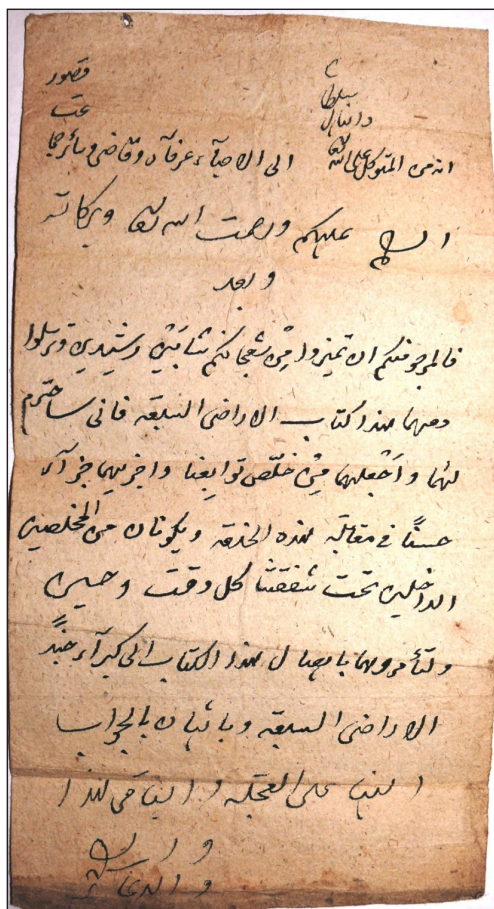 انه من المتوكل على الله تعالى الى الاحبآء عرفآء وقاضى وسائر
السلام عليكم ورحمت الله تعالى وبركاته
وبعد
فالمرجو منكم ان تميزوا من شجعانكم شابين رشيدين وترسلوا
معهما هذا كتاب الاراضى السبعه فانى ساحترم
لهما واجعلهما من خلّص توابعنا واجزيهما جزآء
حسنًا فى مقابلة هذه الخدمة ويكونان من المخلصين
الداخلين تحت شفقتنا كل وقت وحين
ولتأمروهما بايصال هذا الكتاب الى كبرآء جند
الاراضى السبعه وياتيان بالجواب
الينا على العجلة والباقى هذا
والدعاء